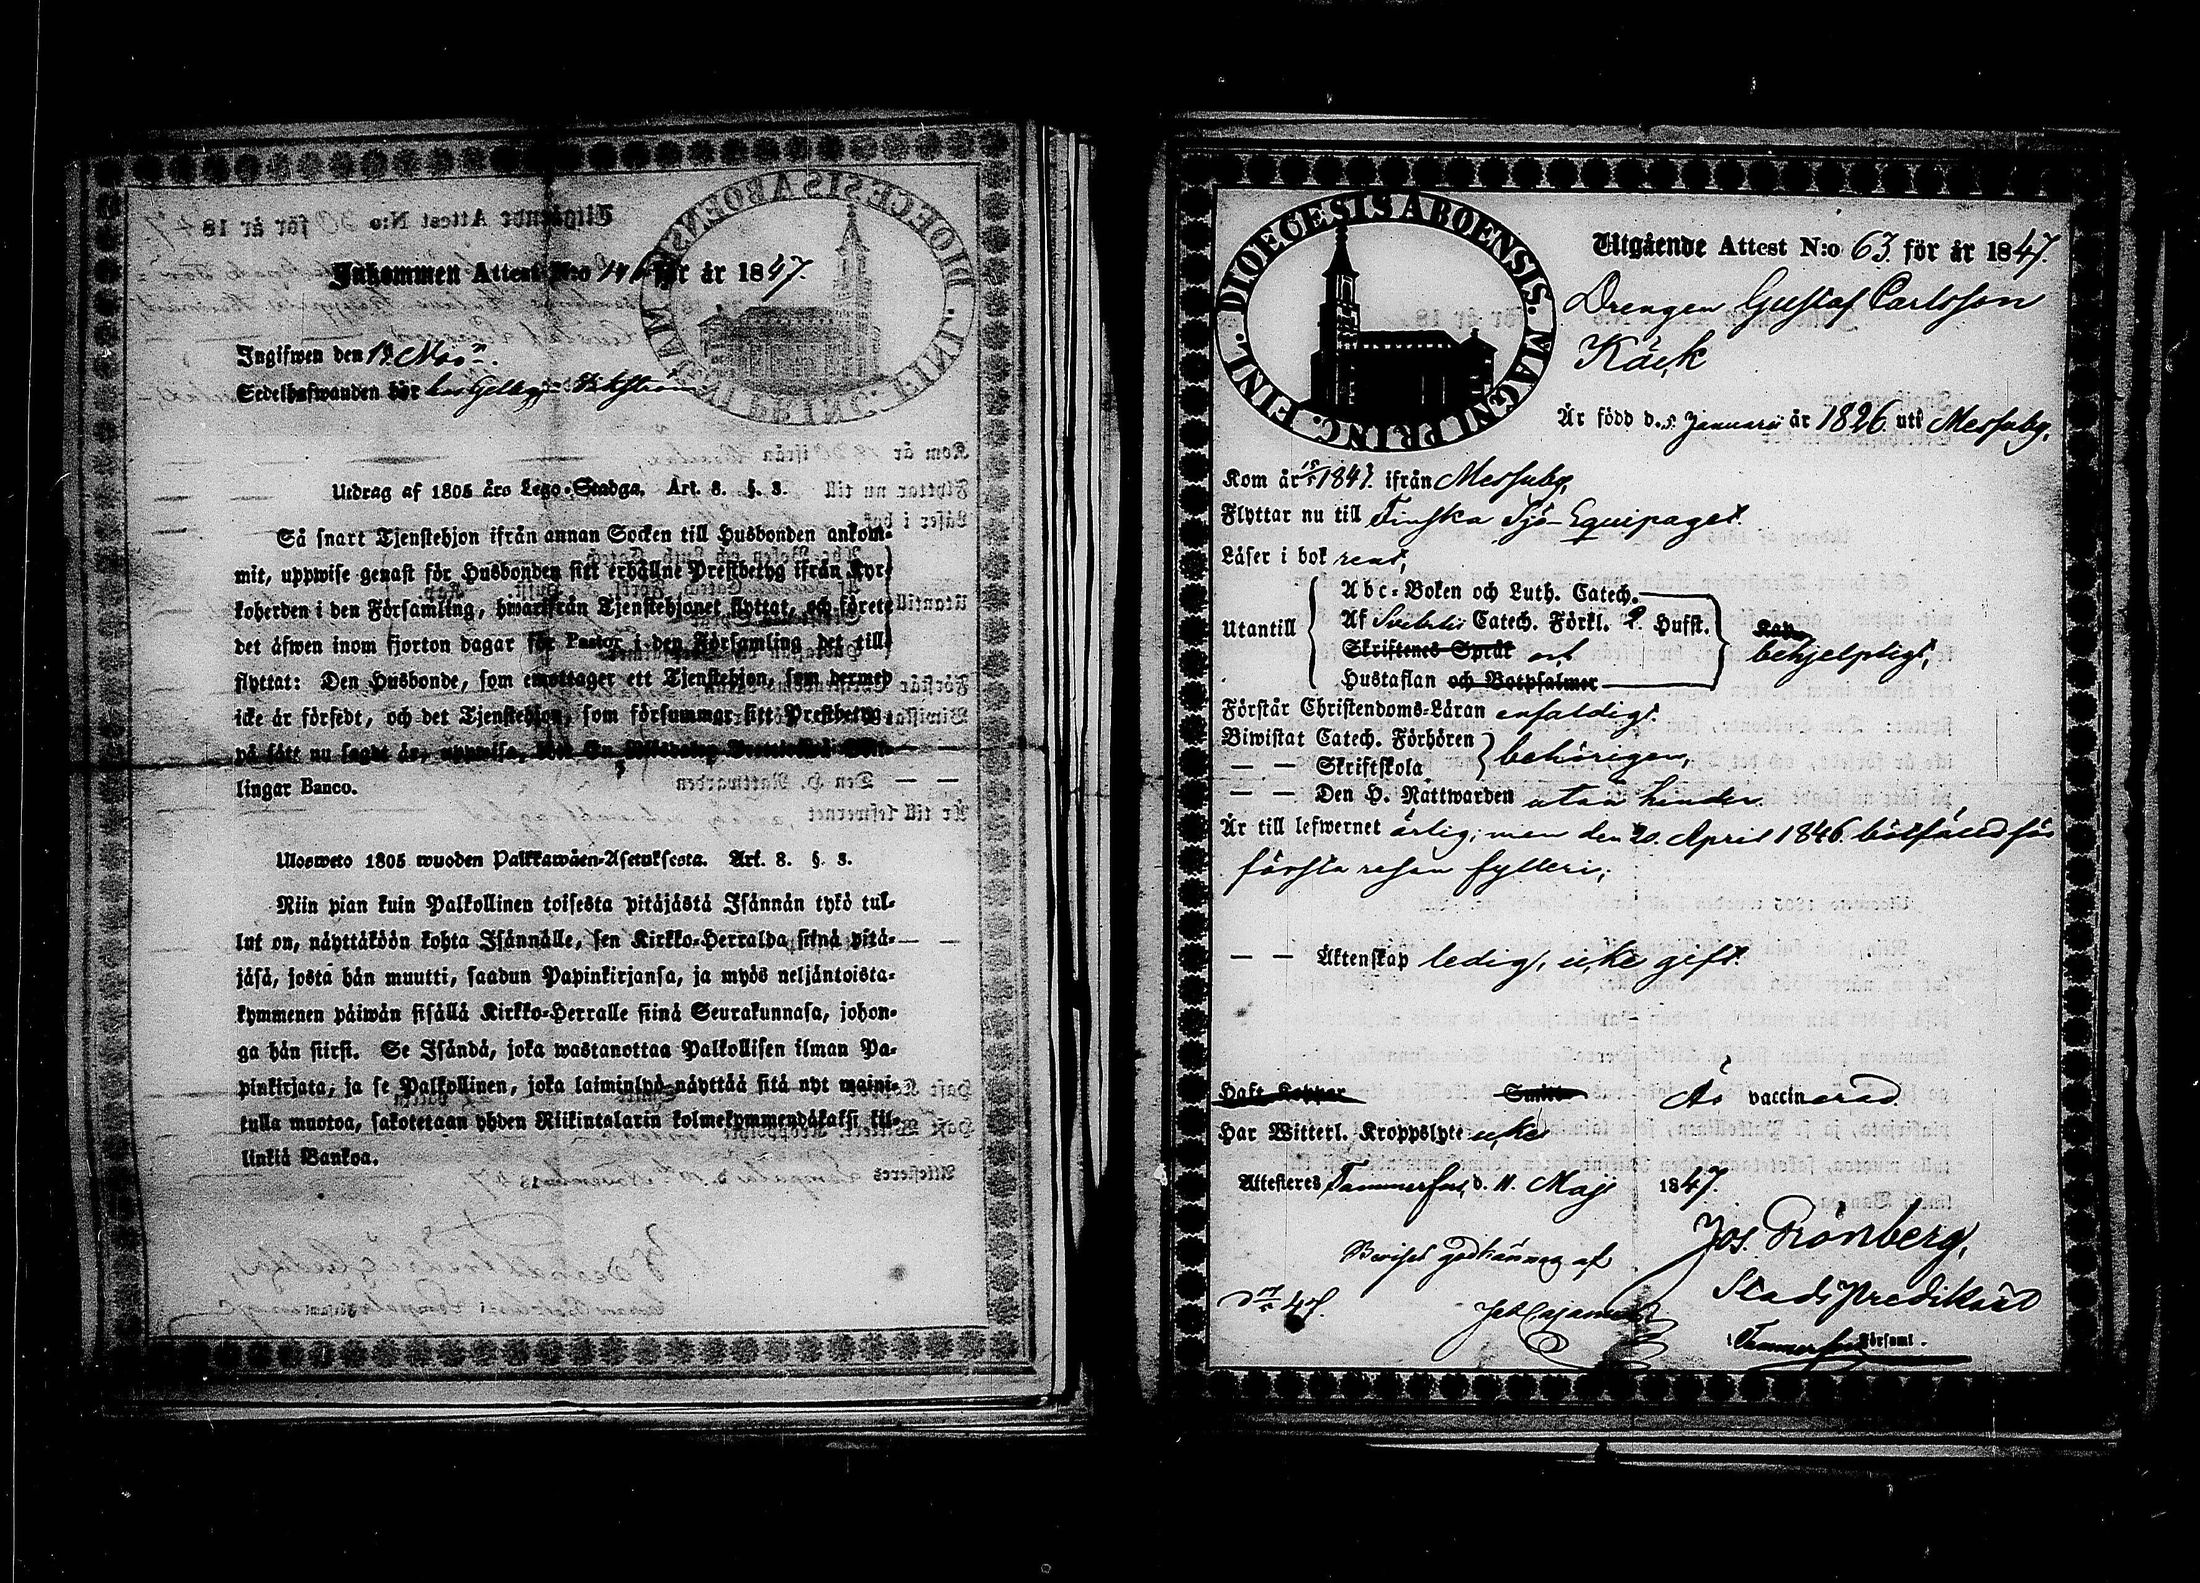 Inkommen Attest N:o för år 1847.
Ingifwen den 12
Sedelhafwanden bör
Utdrag af 1805 års Lego-Stadga. Art. 8. §. 3.
Så snart Tjenstehjon ifrån annan Socken till Husbonden ankom-
mit, uppwise genast för Husbonden sitt erhållne Prestbetyg ifrån Kyr-
koherden i den Församling, hwarifrån Tjenstehjonet flyttat, och förete
det äfwen inom fjorton dagar för Pastor i den Församling det till-
flyttat: Den Husbonde, som emottager ett Tjenstehjon, som dermed
icke är försedt, och det Tjenstehjon, som försummar sitt Prestbetyg
på sätt nu sagdt är, uppwisa,
lingar Banco.
Ulosweto 1805 wuoden Palkkawäen-Asetuksesta. Art. 8. §. 3.
Niin pian kuin Palkollinen toisesta pitäjästä Isännän tykö tul-
lut on, näyttäköön kohta Isännälle, sen Kirkko-Herralda siinä pitä-
jäsä, josta hän muutti, saadun Papinkirjansa, ja myös neljäntoista-
kymmenen päiwän sisällä Kirkko-Herralle siinä Seurakunnasa, johon-
ga hän siirsi. Se Isändä, joka wastanottaa Palkollisen ilman Pa-
pinkirjata, ja se Palkollinen, joka laiminlyö näyttää sitä nyt maini-
tulla muotoa, sakotetaan yhden Riikintalarin kolmekymmendäkaksi kil-
linkiä Bankoa.
DIOECESIS ABOENSIS. MAGNI PRINC. FINL.
Utgående Attest N:o 63 för år 1847.
Drengen Gustaf Carlsson
Käck
Är född d. 5 Januarii år 1826 uti Messuby,
Kom år 1847. ifrån Messuby,
Flyttar nu till Finska Sjö-Equipaget.
Läser i bok rent,
Utantill
Abc-Boken och Luth. Catech.
Af Svebelii Catech. Förkl. Husst.
Skriftenes Språk och
Hustaflan och Botpsalmer
behjelpligt,
Förstår Christendoms-Läran enfaldigt.
Biwistat Catech. Förhören
— — Skriftskola
behörigen,
— — Den H. Nattwarden utan hinder.
Är till lefwernet ärlig; men den 20. April 1846. botfälld för
första resan fylleri;
— — Äktenskap ledig, icke gift.
Haft Koppor Smitt Är vaccinerad.
Har Witterl. Kroppslyte icke
Attesteres Tammerfors, d. 11. Maji 1847.
Jos. Grönberg,
Stads Predikant
i Tammerfors Församl.
Beviset godkännes af